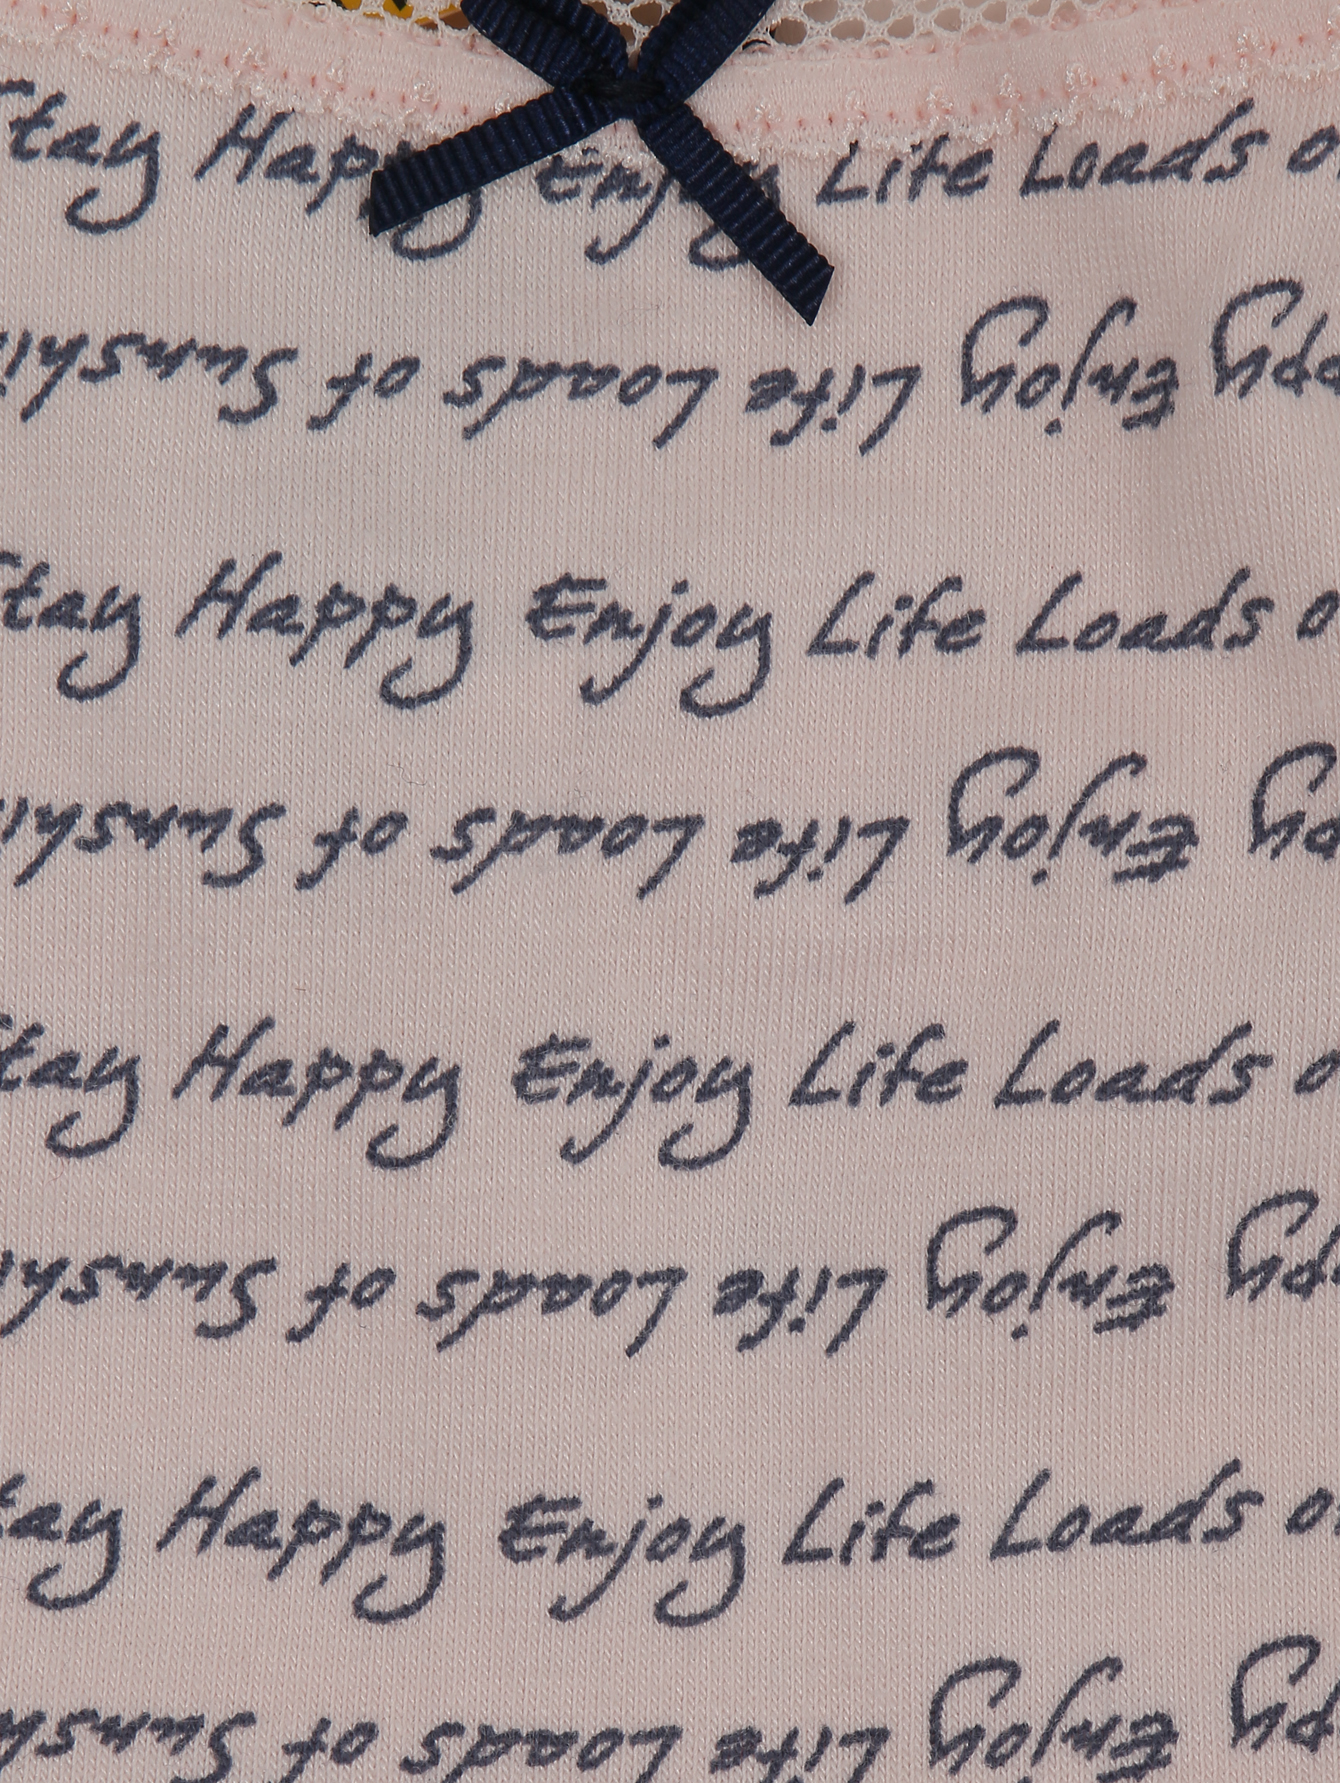 Stay Happy Enjoy Life Loads o
Enjoy Life Loads of Sunshi
Stay Happy Enjoy Life Loads o
Enjoy Life Loads of Sunshi
Stay Happy Enjoy Life Loads o
Enjoy Life Loads of Sunshi
tay Happy Enjoy Life Loads o
Enjoy Life Loads of Sunsh